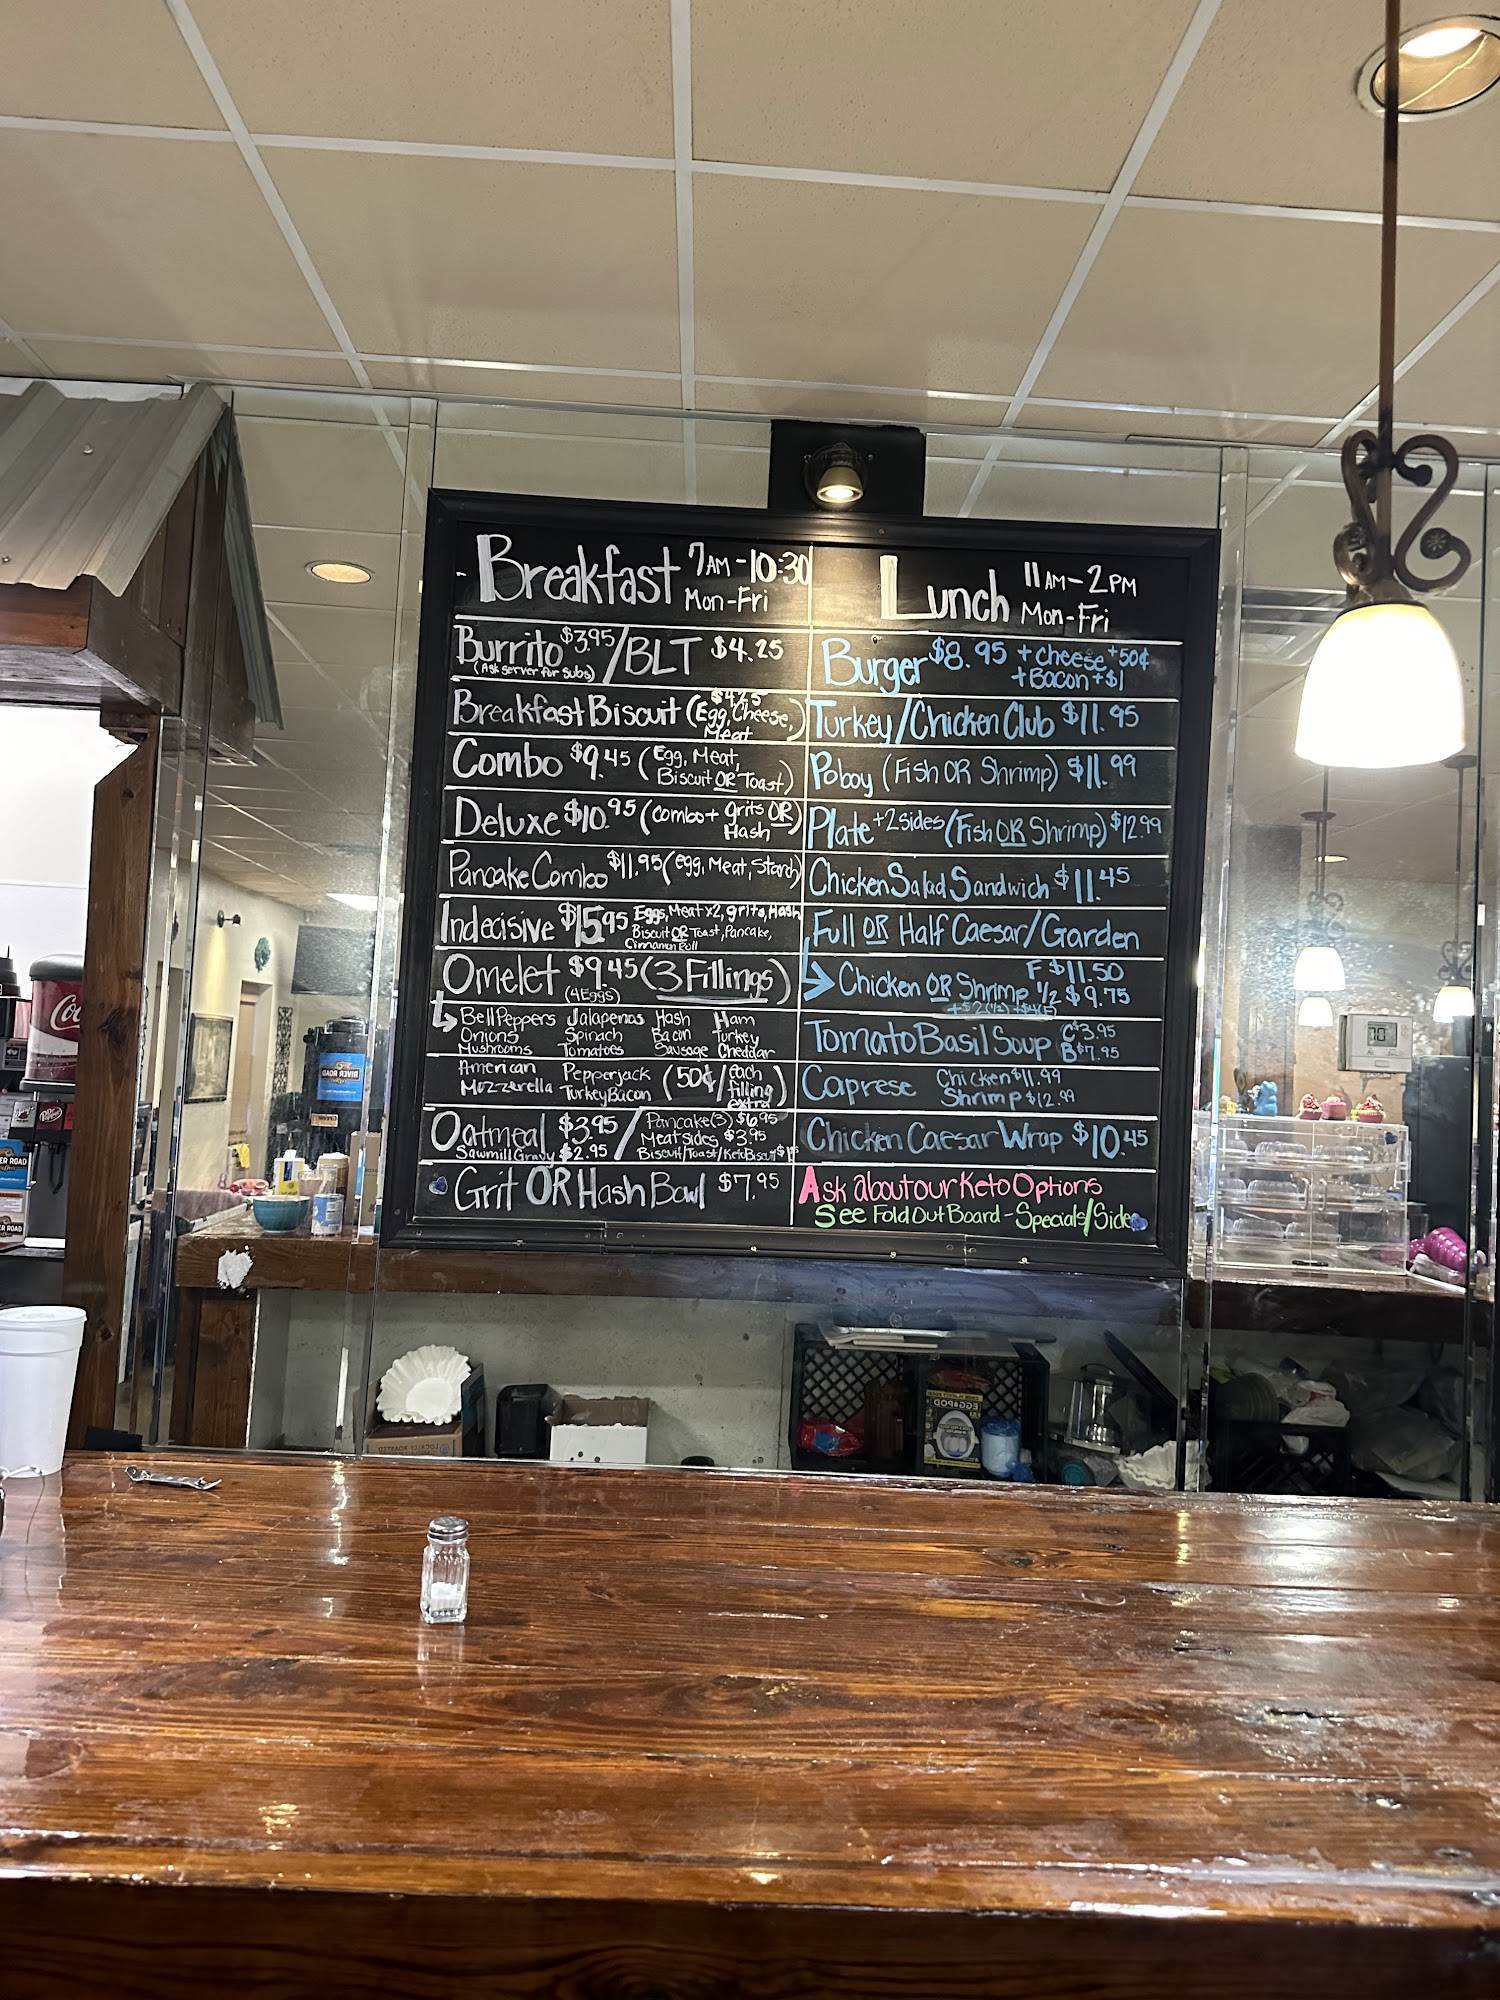 Breakfast 7AM-10:30
Mon-Fri
Burrito $3.95 / BLT $4.25
(Ask server for subs)
Breakfast Biscuit (Egg, Cheese, Meat)
Combo $9.45 (Egg, Meat,
Biscuit OR Toast)
Deluxe $10.95 (combo + grits OR
Hash)
Pancake Combo $11.95 (egg, Meat, Starch)
Indecisive $15.95 Eggs, Meat x2, grits, Hash
Biscuit OR Toast, Pancake,
Cinnamon Roll
Omelet $9.45 (3 Fillings)
(4 Eggs)
Bell Peppers Jalapenos Hash Ham
Onions Spinach Bacon Turkey
Mushrooms Tomatoes Sausage Cheddar
American Pepperjack (50¢/each
Mozzerella Turkey Bacon filling
extra)
Oatmeal $3.95 / Pancake(3) $6.95
Meat sides $3.95
Sawmill Gravy $2.95 Biscuit/Toast/Keto Biscuit
Grit OR Hash Bowl $7.95
Lunch 11AM-2PM
Mon-Fri
Burger $8.95 + cheese +50¢
+Bacon +$1
Turkey/Chicken Club $11.95
Poboy (Fish OR Shrimp) $11.99
Plate +2 sides (Fish OR Shrimp) $12.99
Chicken Salad Sandwich $11.45
Full OR Half Caesar/Garden
Chicken OR Shrimp F $11.50
1/2 $9.75
Tomato Basil Soup C $3.95
B $7.95
Caprese Chicken $11.99
Shrimp $12.99
Chicken Caesar Wrap $10.45
Ask about our Keto Options
See Fold Out Board - Specials/Sides
Coc
Dr Pepper
RIVER ROAD
ER ROAD
ER ROAD
EGGPOD
LOCALLY ROASTED
70